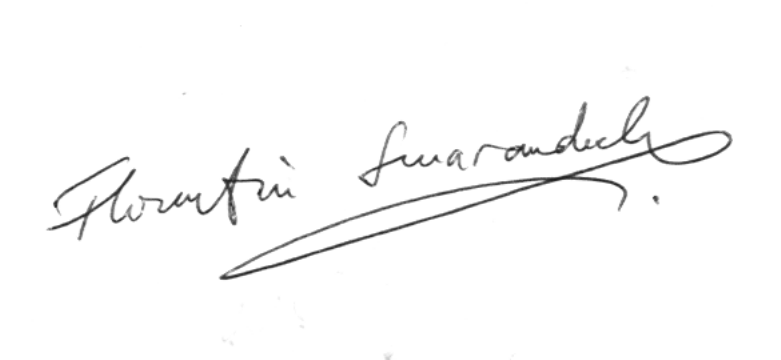 Florentin Smarandache